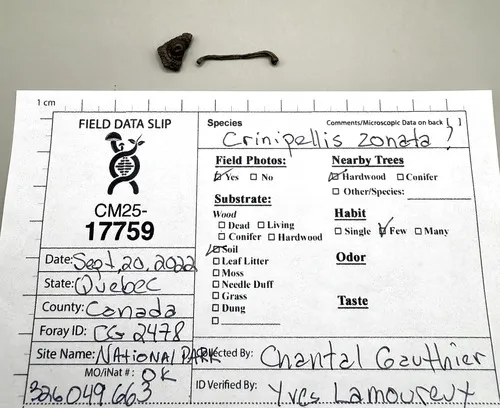 1 cm
FIELD DATA SLIP
CM25-
17759
Date: Sept, 20, 2022
State: Quebec
County: Canada
Foray ID: CG 2478
Site Name: NATIONAL PARK
MO/iNat #: OK
326049663
Species
Comments/Microscopic Data on back [ ]
Crinipellis zonata?
Field Photos:
Yes No
Nearby Trees
Hardwood Conifer
Other/Species:
Substrate:
Wood
Dead Living
Conifer Hardwood
Soil
Leaf Litter
Moss
Needle Duff
Grass
Dung
Habit
Single Few Many
Odor
Taste
Collected By: Chantal Gauthier
ID Verified By: Yves Lamoureux